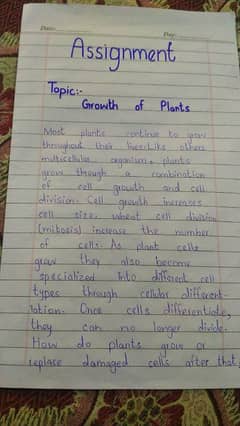 Date:
Day:
Assignment
Topic:-
Growth of Plants
Most plants continue to grow
throughout their lives. Like others
multicellular organism, plants
grow though a combination
of cell growth and cell
division. Cell growth increases
cell size, wheat cell division
(mitosis) increase the number
of cells. As plant cells
grow they also become
specialized into different cell
types through cellular different-
iation. Once cells differentiate,
they can no longer divide.
How do plants grow or
replace damaged cells after that